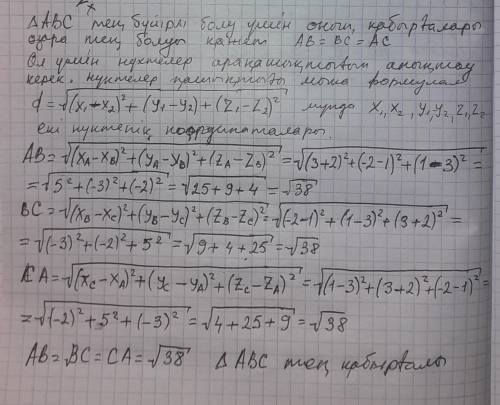 ΔABC тең бүйірлі болу үшін оның қабырғалары
өзара тең болуы қажет AB = BC = AC
Ол үшін нүктелер арақашықтығын анықтау
керек. нүктелер қашықтығы мына формуламен
d = √((x₁-x₂)² + (y₁-y₂) + (z₁-z₂)²) мұнда x₁, x₂, y₁, y₂, z₁, z₂
екі нүктенің координаталары.
AB = √((x_A-x_B)² + (y_A-y_B)² + (z_A-z_B)²) = √((3+2)² + (-2-1)² + (1-3)²) =
= √(5² + (-3)² + (-2)²) = √(25+9+4) = √38
BC = √((x_B-x_C)² + (y_B-y_C)² + (z_B-z_C)²) = √((-2-1)² + (1-3)² + (3+2)²) =
= √((-3)² + (-2)² + 5²) = √(9+4+25) = √38
CA = √((x_C-x_A)² + (y_C-y_A)² + (z_C-z_A)²) = √((1-3)² + (3+2)² + (-2-1)²) =
= √((-2)² + 5² + (-3)²) = √(4+25+9) = √38
AB = BC = CA = √38 ΔABC тең қабырғалы